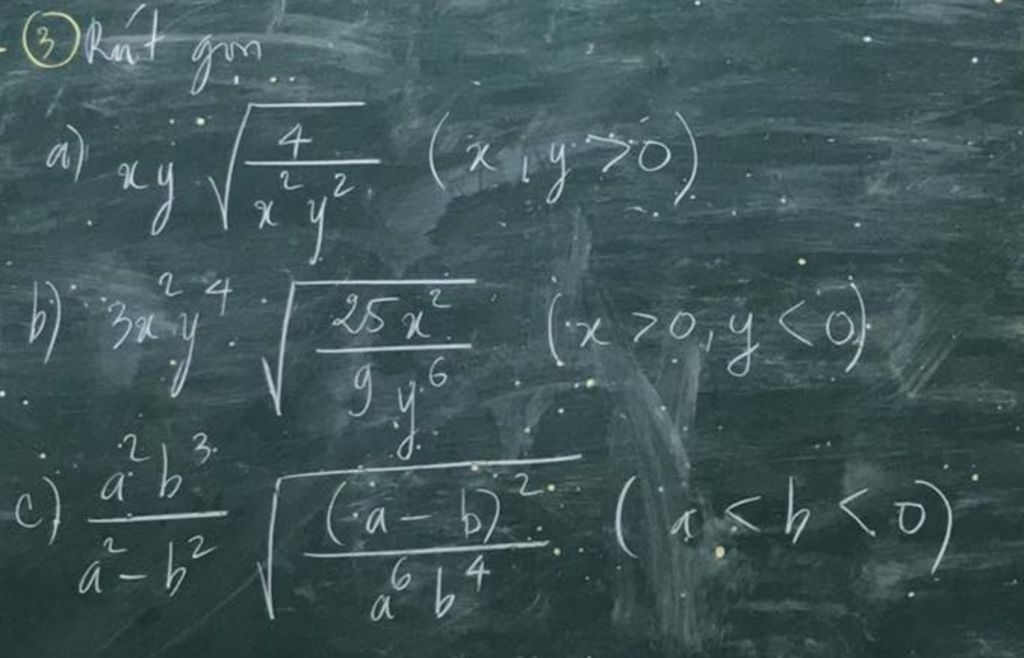 ③ Rút gọn
a) xy √(4/(x²y²)) (x, y > 0)
b) 3x²y⁴ √(25x²/(9y⁶)) (x > 0, y < 0)
c) a²b³/(a² - b²) √((a - b)²/(a⁶b⁴)) (a < b < 0)